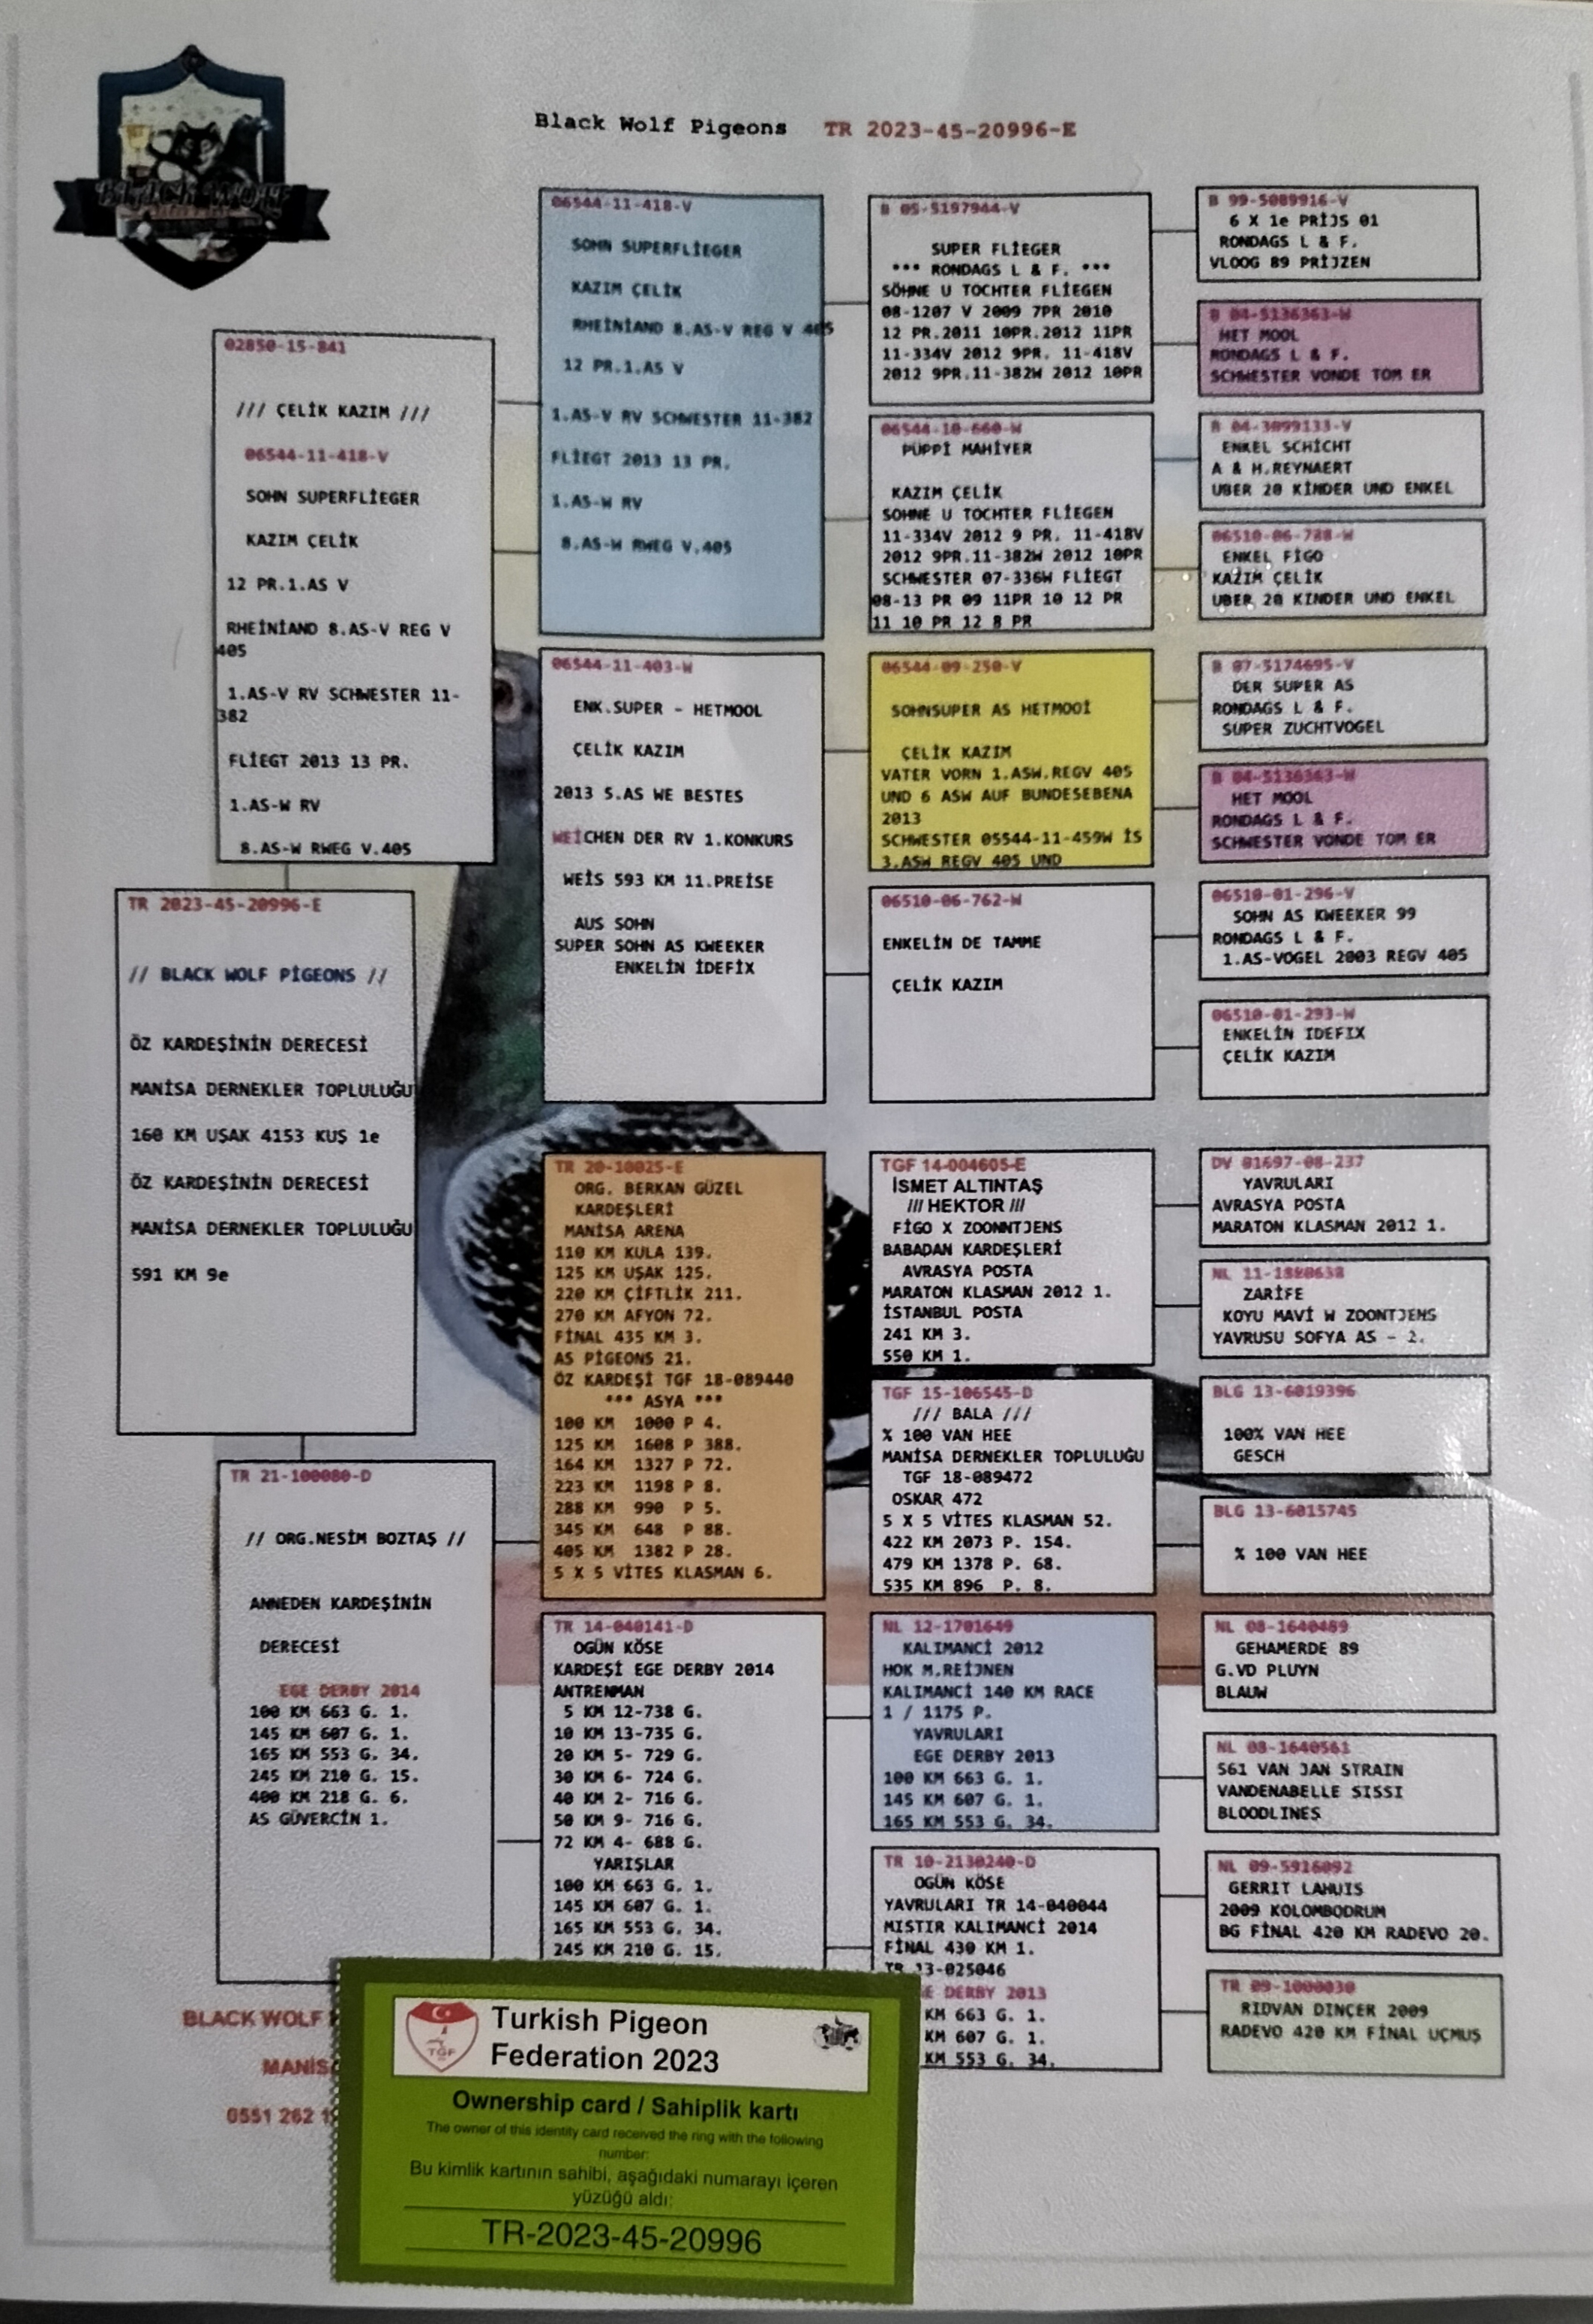 BLACK WOLF
Black Wolf Pigeons TR 2023-45-20996-E
02850-15-841
/// ÇELİK KAZIM ///
06544-11-418-V
SOHN SUPERFLİEGER
KAZIM ÇELİK
12 PR.1.AS V
RHEİNİAND 8.AS-V REG V
405
1.AS-V RV SCHWESTER 11-
382
FLİEGT 2013 13 PR.
1.AS-W RV
8.AS-W RWEG V.405
TR 2023-45-20996-E
// BLACK WOLF PİGEONS //
ÖZ KARDEŞİNİN DERECESİ
MANİSA DERNEKLER TOPLULUĞU
160 KM UŞAK 4153 KUŞ 1e
ÖZ KARDEŞİNİN DERECESİ
MANİSA DERNEKLER TOPLULUĞU
591 KM 9e
TR 21-100080-D
// ORG.NESİM BOZTAŞ //
ANNEDEN KARDEŞİNİN
DERECESİ
EGE DERBY 2014
100 KM 663 G. 1.
145 KM 607 G. 1.
165 KM 553 G. 34.
245 KM 210 G. 15.
400 KM 218 G. 6.
AS GÜVERCİN 1.
06544-11-418-V
SOHN SUPERFLİEGER
KAZIM ÇELİK
RHEİNİAND 8.AS-V REG V 405
12 PR.1.AS V
1.AS-V RV SCHWESTER 11-382
FLİEGT 2013 13 PR.
1.AS-W RV
8.AS-W RWEG V.405
06544-11-403-W
ENK.SUPER - HETMOOL
ÇELİK KAZIM
2013 5.AS WE BESTES
WEİCHEN DER RV 1.KONKURS
WEİS 593 KM 11.PREİSE
AUS SOHN
SUPER SOHN AS KWEEKER
ENKELİN İDEFİX
TR 20-10025-E
ORG. BERKAN GÜZEL
KARDEŞLERİ
MANİSA ARENA
110 KM KULA 139.
125 KM UŞAK 125.
220 KM ÇİFTLİK 211.
270 KM AFYON 72.
FİNAL 435 KM 3.
AS PİGEONS 21.
ÖZ KARDEŞİ TGF 18-089440
*** ASYA ***
100 KM 1000 P 4.
125 KM 1608 P 388.
164 KM 1327 P 72.
223 KM 1198 P 8.
288 KM 990 P 5.
345 KM 648 P 88.
405 KM 1382 P 28.
5 X 5 VİTES KLASMAN 6.
TR 14-040141-D
OGÜN KÖSE
KARDEŞİ EGE DERBY 2014
ANTRENMAN
5 KM 12-738 G.
10 KM 13-735 G.
20 KM 5- 729 G.
30 KM 6- 724 G.
40 KM 2- 716 G.
50 KM 9- 716 G.
72 KM 4- 688 G.
YARIŞLAR
100 KM 663 G. 1.
145 KM 607 G. 1.
165 KM 553 G. 34.
245 KM 210 G. 15.
B 05-5197944-V
SUPER FLİEGER
*** RONDAGS L & F. ***
SÖHNE U TOCHTER FLİEGEN
08-1207 V 2009 7PR 2010
12 PR.2011 10PR.2012 11PR
11-334V 2012 9PR. 11-418V
2012 9PR.11-382W 2012 10PR
06544-10-660-W
PÜPPİ MAHİYER
KAZIM ÇELİK
SOHNE U TOCHTER FLİEGEN
11-334V 2012 9 PR. 11-418V
2012 9PR.11-382W 2012 10PR
SCHWESTER 07-336W FLİEGT
08-13 PR 09 11PR 10 12 PR
11 10 PR 12 8 PR
06544-09-250-V
SOHNSUPER AS HETMOOİ
ÇELİK KAZIM
VATER VORN 1.ASW.REGV 405
UND 6 ASW AUF BUNDESEBENA
2013
SCHWESTER 05544-11-459W İS
3.ASW REGV 405 UND
06510-06-762-W
ENKELİN DE TAMME
ÇELİK KAZIM
TGF 14-004605-E
İSMET ALTINTAŞ
/// HEKTOR ///
FİGO X ZOONNTJENS
BABADAN KARDEŞLERİ
AVRASYA POSTA
MARATON KLASMAN 2012 1.
İSTANBUL POSTA
241 KM 3.
550 KM 1.
TGF 15-106545-D
/// BALA ///
% 100 VAN HEE
MANİSA DERNEKLER TOPLULUĞU
TGF 18-089472
OSKAR 472
5 X 5 VİTES KLASMAN 52.
422 KM 2073 P. 154.
479 KM 1378 P. 68.
535 KM 896 P. 8.
NL 12-1701649
KALIMANCİ 2012
HOK M.REİJNEN
KALIMANCİ 140 KM RACE
1 / 1175 P.
YAVRULARI
EGE DERBY 2013
100 KM 663 G. 1.
145 KM 607 G. 1.
165 KM 553 G. 34.
TR 10-2130240-D
OGÜN KÖSE
YAVRULARI TR 14-040044
MISTIR KALIMANCİ 2014
FİNAL 430 KM 1.
TR 13-025046
DERBY 2013
KM 663 G. 1.
KM 607 G. 1.
KM 553 G. 34.
B 99-5089916-V
6 X 1e PRİJS 01
RONDAGS L & F.
VLOOG 89 PRİJZEN
B 04-5136363-W
HET MOOL
RONDAGS L & F.
SCHWESTER VONDE TOM ER
B 04-3099133-V
ENKEL SCHİCHT
A & H.REYNAERT
UBER 20 KİNDER UND ENKEL
06510-06-788-W
ENKEL FİGO
KAZIM ÇELİK
UBER 20 KINDER UND ENKEL
B 07-5174695-V
DER SUPER AS
RONDAGS L & F.
SUPER ZUCHTVOGEL
B 04-5136363-W
HET MOOL
RONDAGS L & F.
SCHWESTER VONDE TOM ER
06510-01-296-V
SOHN AS KWEEKER 99
RONDAGS L & F.
1.AS-VOGEL 2003 REGV 405
06510-01-293-W
ENKELİN IDEFIX
ÇELİK KAZIM
DV 01697-08-237
YAVRULARI
AVRASYA POSTA
MARATON KLASMAN 2012 1.
NL 11-1880638
ZARİFE
KOYU MAVİ W ZOONTJENS
YAVRUSU SOFYA AS - 2.
BLG 13-6019396
100% VAN HEE
GESCH
BLG 13-6015745
% 100 VAN HEE
NL 08-1640489
GEHAMERDE 89
G.VD PLUYN
BLAUW
NL 08-1640561
561 VAN JAN STRAIN
VANDENABELLE SISSI
BLOODLINES
NL 09-5916092
GERRIT LAHUIS
2009 KOLOMBODRUM
BG FİNAL 420 KM RADEVO 20.
TR 09-1000030
RIDVAN DINÇER 2009
RADEVO 420 KM FİNAL UÇMUŞ
BLACK WOLF
MANİSA
0551 262 1
TGF
Turkish Pigeon
Federation 2023
Ownership card / Sahiplik kartı
The owner of this identity card received the ring with the following
number:
Bu kimlik kartının sahibi, aşağıdaki numarayı içeren
yüzüğü aldı:
TR-2023-45-20996